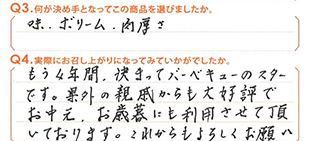 Q3.何が決め手となってこの商品を選びましたか。
味.ボリーム.肉厚さ
Q4.実際にお召し上がりになってみていかがでしたか。
もう4年間、決まってバーベキューのスター
です。県外の親戚からも大好評で
お中元、お歳暮にも利用させて頂
いております。これからもよろしくお願い